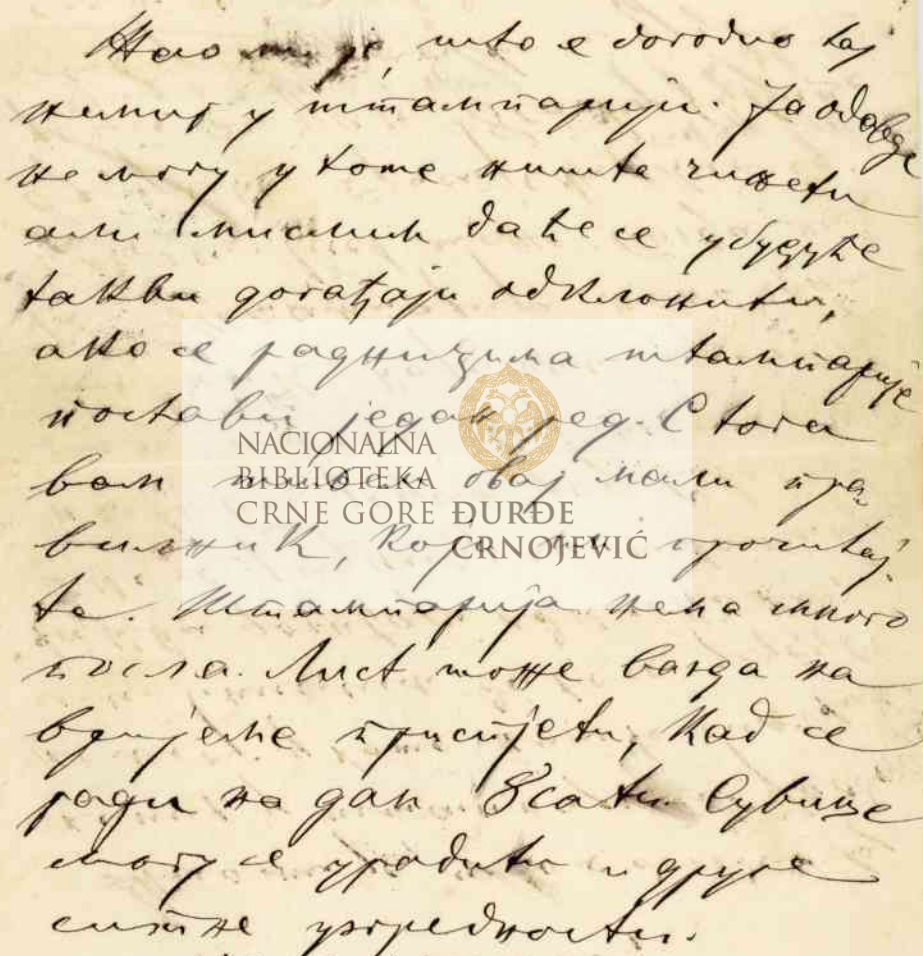 Жао ми је, што е догодио тај
немир у штампарији. Ја одавде
не могу у томе ништа чинети
али мислим да ће се убудуће
такви догађаји одклонити,
ако се радницима штампарије
постави један ред. С тога
вам шиљем овај мали пра-
вилник, који прочитај-
те. Штампарија нема много
посла. Лист може вазда на
вријеме приспјети, кад се
ради на дан 8 сати. Сувише
могу се урадити и друге
ситне узгредности.
NACIONALNA
BIBLIOTEKA
CRNE GORE ĐURĐE
CRNOJEVIĆ